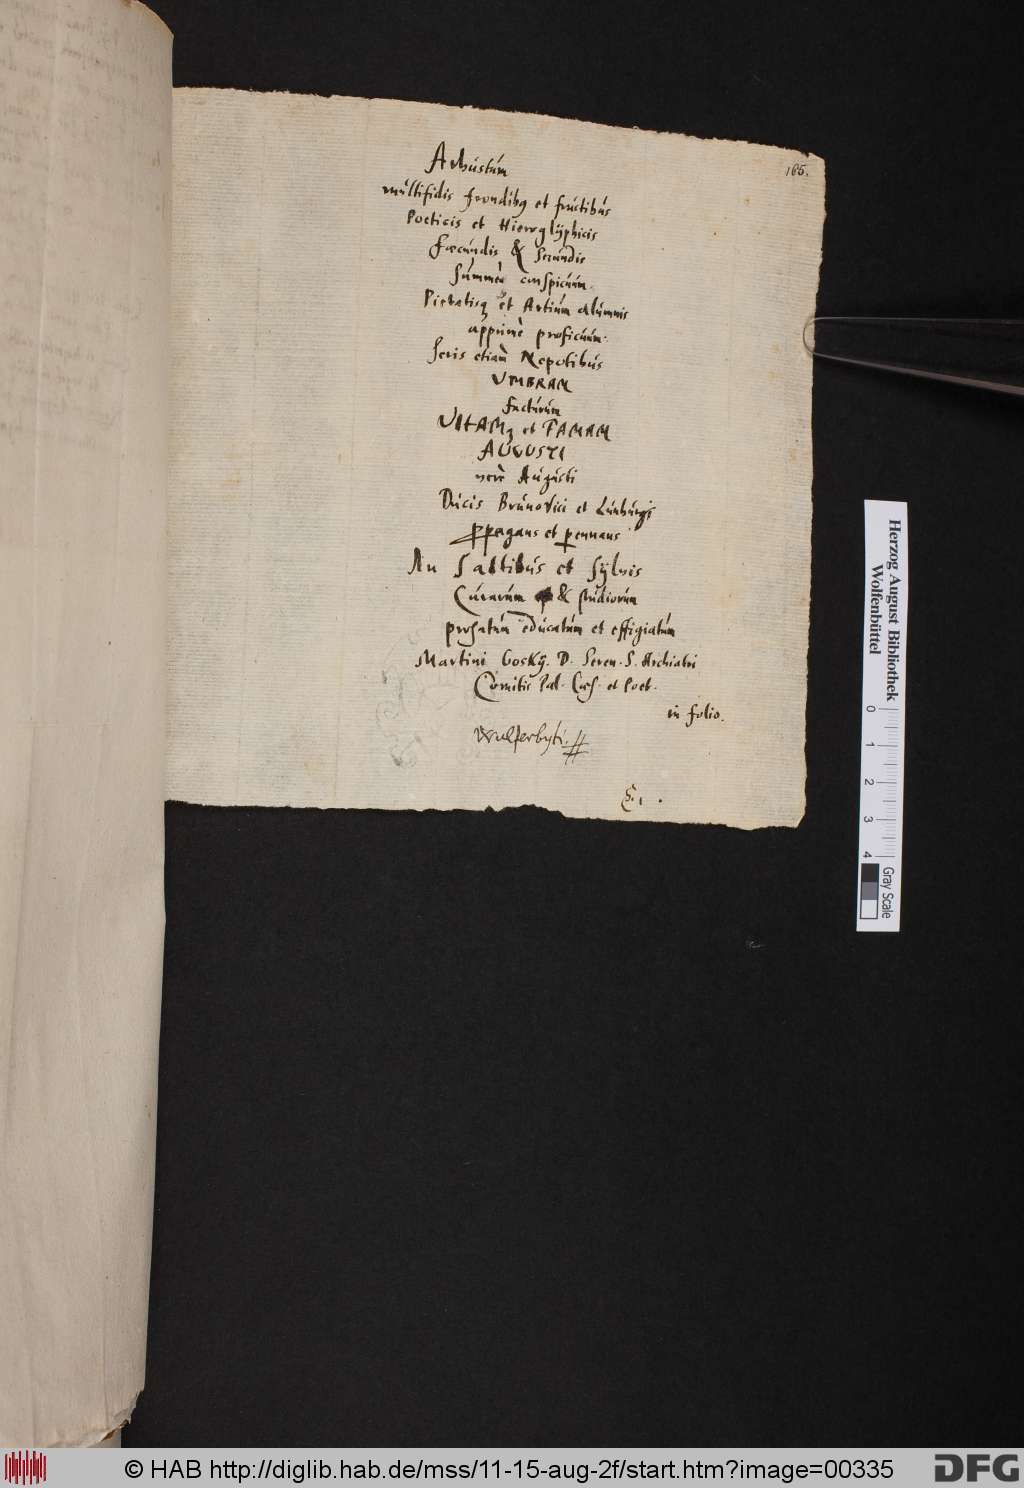 165.
Arbustum
multifidis frondibꝫ et fructibus
Poeticis et Hieroglÿphicis
foecundis & secundis
Summè conspicuum.
Pietatisꝫ et Artium alumnis
apprimè proficuum.
Seris etiam Nepotibus
UMBRAM
facturum
VITAMꝫ et FAMAM
AUGUSTI
verè Augusti
Ducis Brunovici et Lunburgi
ꝓpagans et ꝑennans
In Saltibus et Sÿlvis
Curarum & studiorum
prosatum educatum et effigiatum
Martini Goskÿ. D. Seren. S. Archiatri
Comitis Pal. Cæs. et Poet.
in folio.
Wulferbyti.
E. 1.
Herzog August Bibliothek
Wolfenbüttel
0 1 2 3 4
Gray Scale
© HAB http://diglib.hab.de/mss/11-15-aug-2f/start.htm?image=00335
DFG